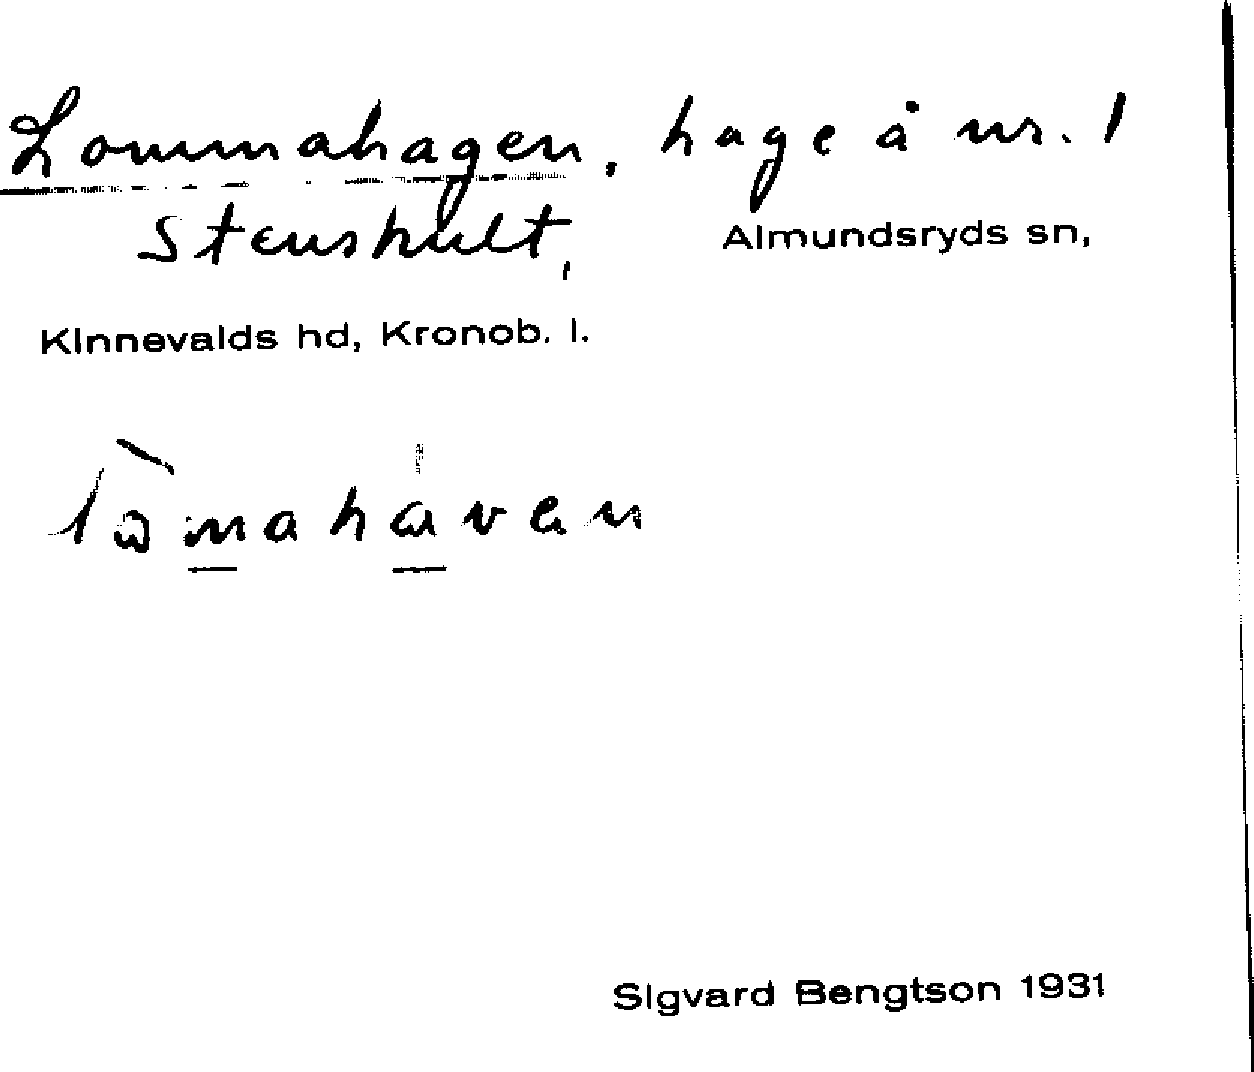 Lommahagen, hage å nr. 1
Stenshult, Almundsryds sn,
Kinnevalds hd, Kronob. l.
lòmahàvan
Sigvard Bengtson 1931